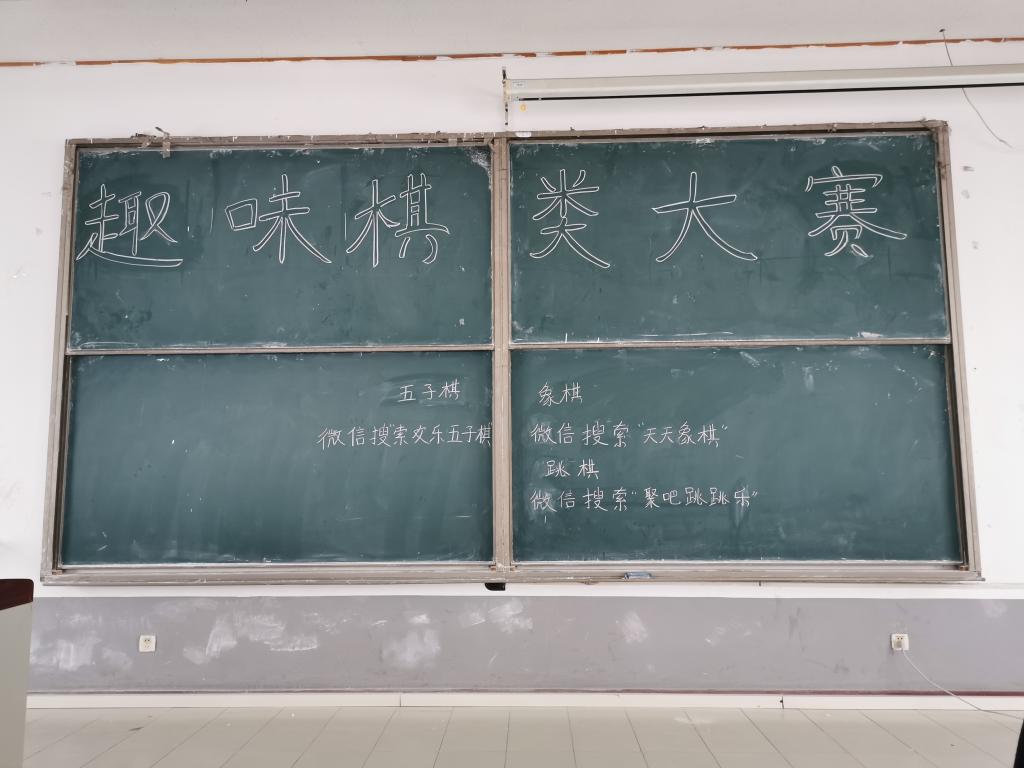 趣味棋类大赛
五子棋
微信搜索欢乐五子棋
象棋
微信搜索"天天象棋"
跳棋
微信搜索"聚吧跳跳乐"